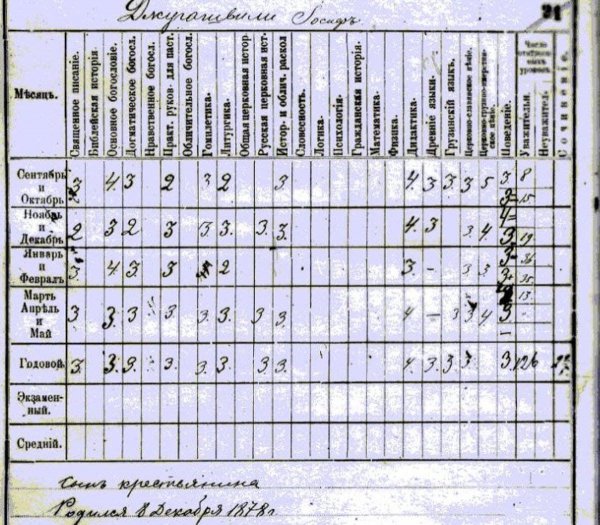 Джугашвили Іосифъ
Мѣсяцъ.
Священное писаніе.
Библейская исторія
Основное богословіе.
Догматическое богосл.
Нравственное богосл.
Практ. руков. для паст.
Обличительное богосл.
Гомилетика.
Литургика.
Общая церковная истор
Русская церковная ист-
Истор- и облич. раскол
Словесность.
Логика.
Психологія-
Гражданская исторія-
Математика.
Физика.
Дидактика.
Древніе языки-
Грузинскій языкъ.
Церковно-славянское пѣніе.
Поведеніе.
Число
уроковъ.
Уважительн.
Неуважител.
Сочиненіе.
Сентябрь 4 3 2 3 2 3 4. 3 3. 3 5 3 8
и
Октябрь 3= 15
Ноябрь 4=
и 2 3 2 3 3 3. 3. 3. 4. 3 3 4
Декабрь 3 19
Январь 3=
и 3. 4. 3 3 2 3. – 3 3
Февраль 3+ 35
Мартъ 13
Апрѣль 3 3. 3 3 3. 3. 3 3. 4 – 3 3 4 3
и
Май
Годовой. 3. 3. 3. 3. 3. 3. 3 3. 4 3. 3 3 3. 126
Экзамен-
ный.
Средній.
сынъ крестьянина
Родился 8 Декабря 1878 г